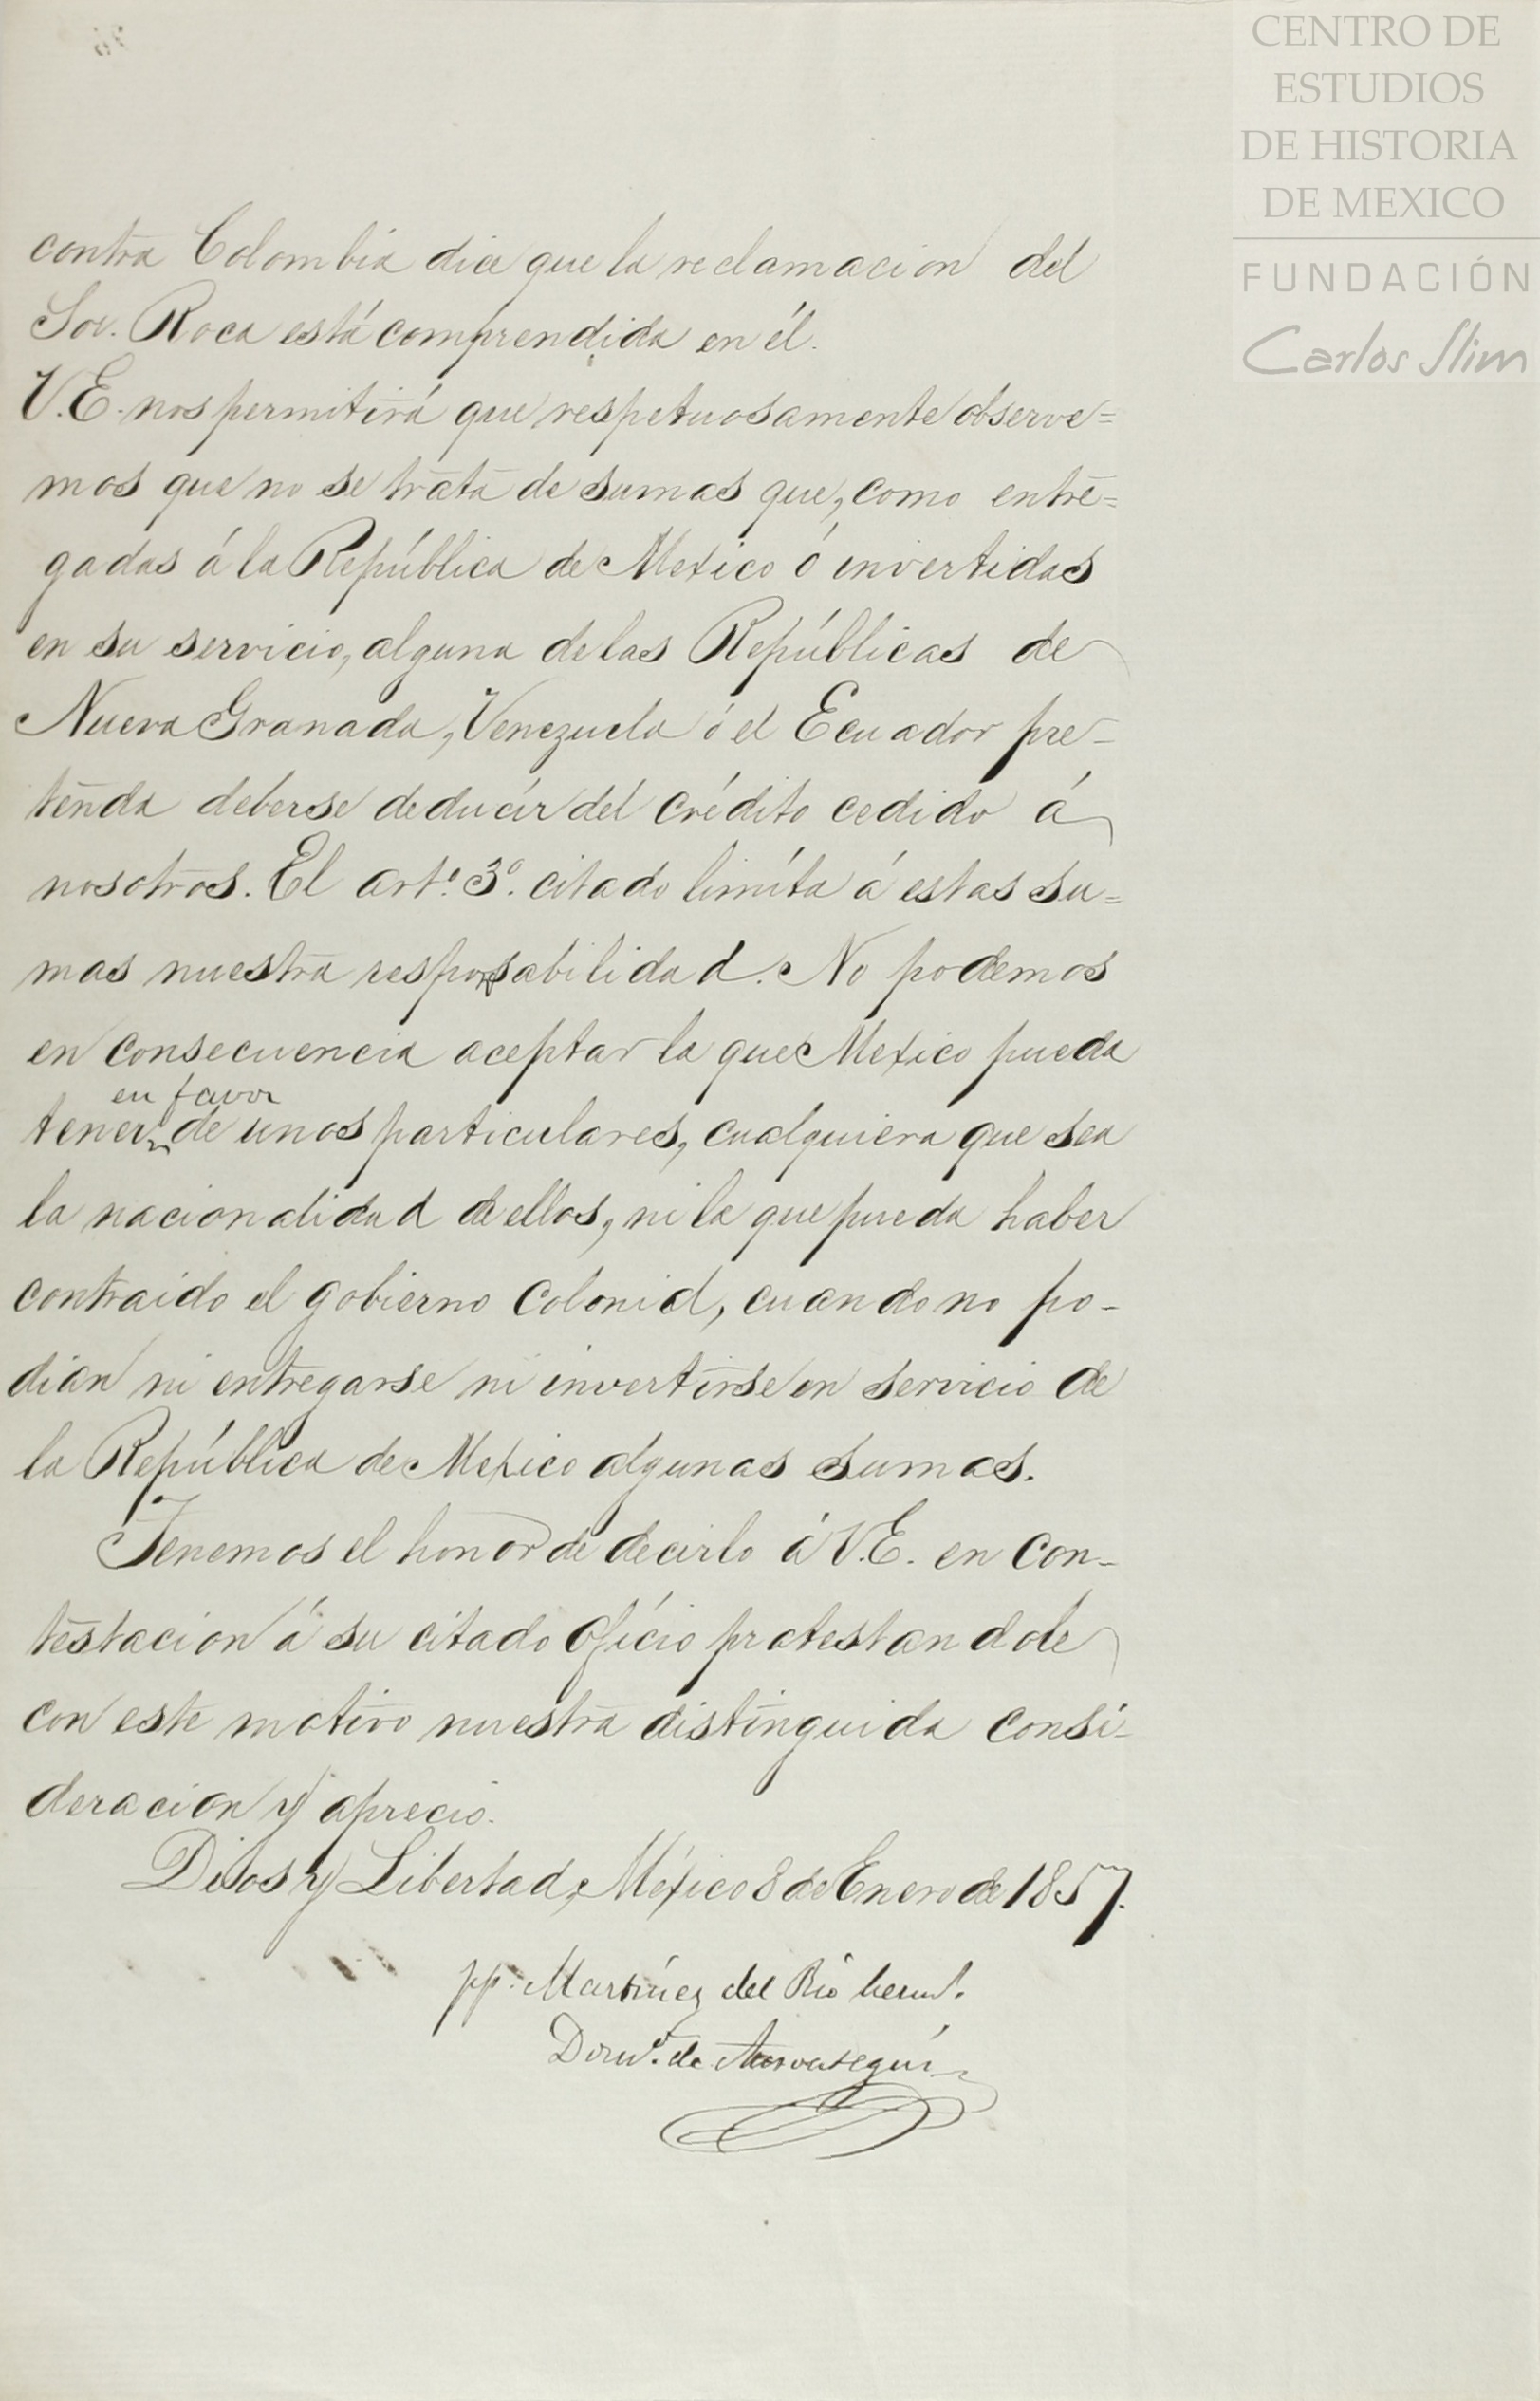 CENTRO DE
ESTUDIOS
DE HISTORIA
DE MEXICO
FUNDACIÓN
Carlos Slim
contra Colombia dice que la reclamacion del
Sor. Roca está comprendida en él.
V.E. nos permitirá que respetuosamente observe=
mos que no se trata de sumas que, como entre=
gadas á la República de Mexico ó invertidas
en su servicio, alguna de las Repúblicas de
Nueva Granada, Venezuela ó el Ecuador pre-
tenda deberse deducir del crédito cedido á
nosotros. El artº. 3º. citado limita á estas su=
mas nuestra responsabilidad. No podemos
en consecuencia aceptar la que Mexico pueda
en favor
tener de unos particulares, cualquiera que sea
la nacionalidad de ellos, ni la que pueda haber
contraido el gobierno colonial, cuando no po-
dian ni entregarse ni invertirse en servicio de
la República de Mexico algunas sumas.
Tenemos el honor de decirlo á V.E. en con-
testacion á su citado oficio protestandole
con este motivo nuestra distinguida consi-
deracion y aprecio.
Dios y Libertad, México 8 de Enero de 1857.
pp. Martínez del Rio herms.
Domº. de Ansoategui